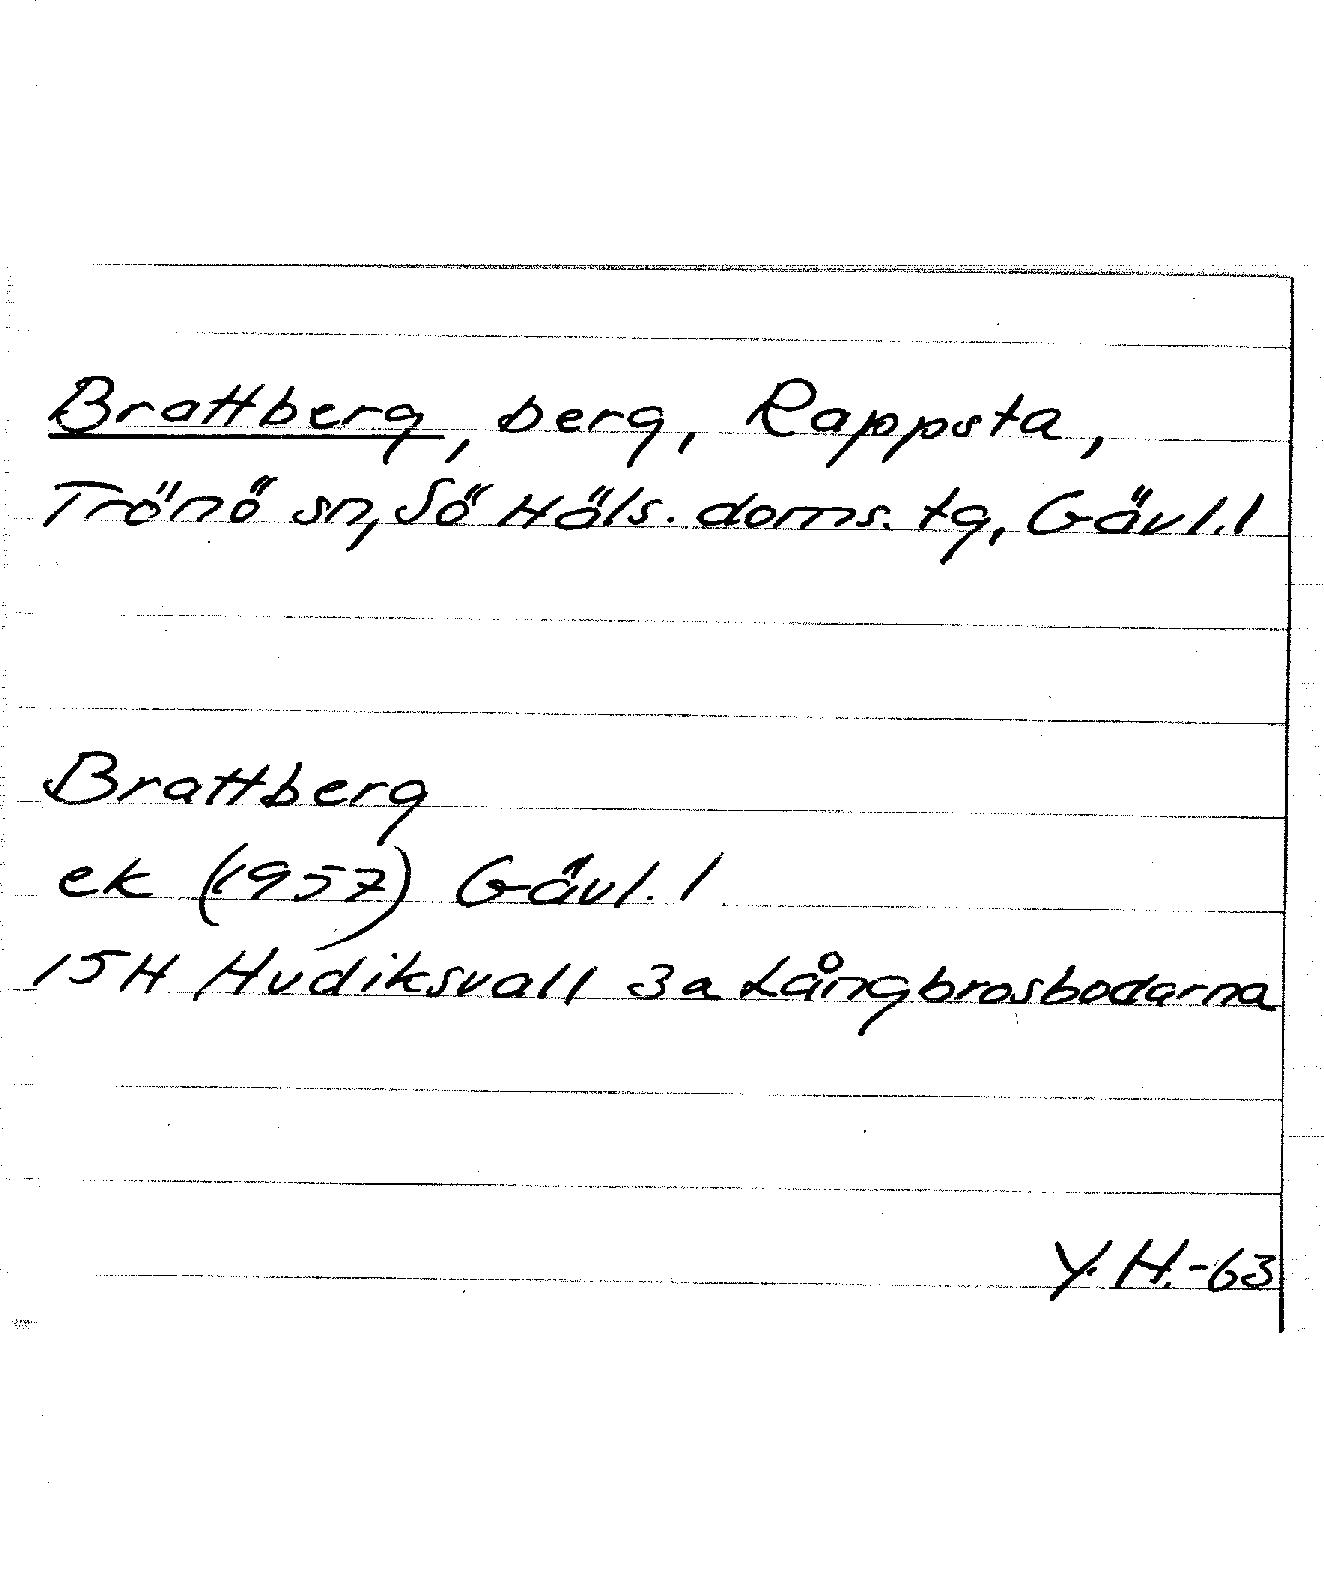 Brattberg, berg, Rappsta,
Trönö sn, Sö Häls. doms. tg, Gävl. l
Brattberg
ek (1957) Gävl. l
15H Hudiksvall 3a Långbrosbodarna
Y. H. -63